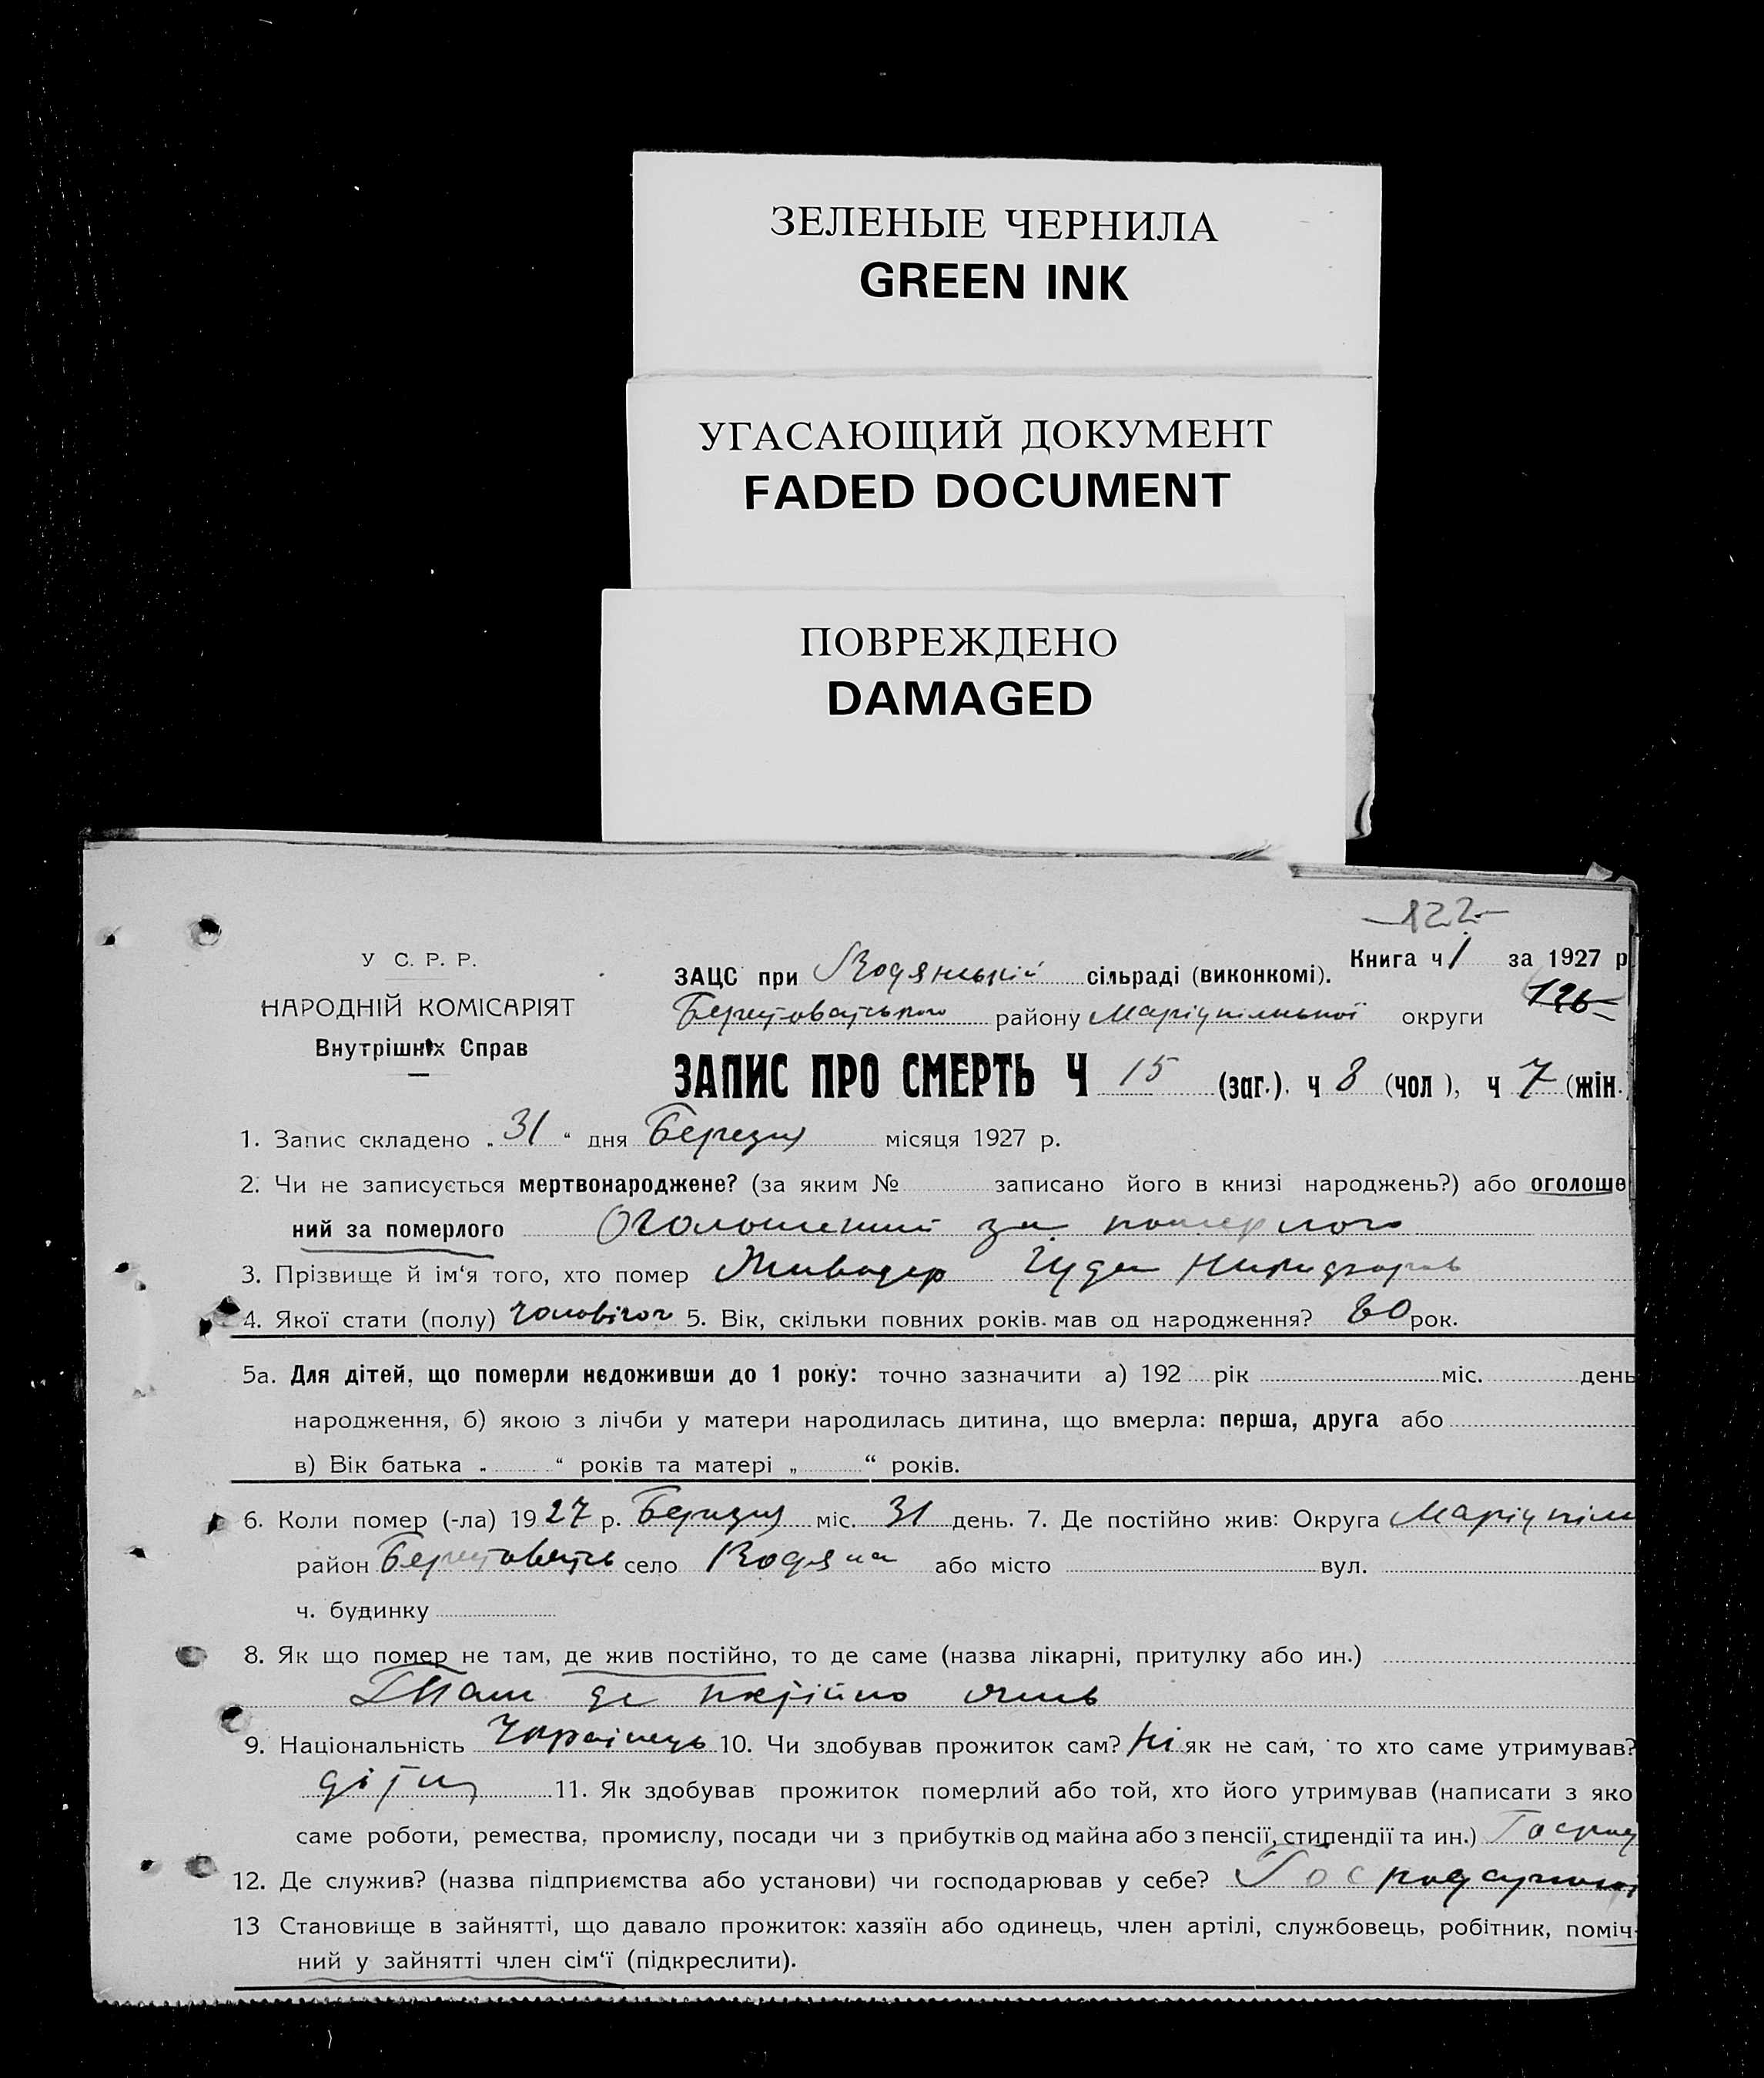 ЗЕЛЕНЫЕ ЧЕРНИЛА
GREEN INK
УГАСАЮЩИЙ ДОКУМЕНТ
FADED DOCUMENT
ПОВРЕЖДЕНО
DAMAGED
-122-
У С. Р. Р.
НАРОДНІЙ КОМІСАРІЯТ
Внутрішніх Справ
ЗАЦС при Водянській сільраді (виконкомі). Книга ч 1 за 1927 р
району Маріупільської округи 126
ЗАПИС ПРО СМЕРТЬ Ч 15 (заг.). ч 8 (чол ), ч 7 (жін.)
1. Запис складено „31“ дня Березня місяця 1927 р.
2. Чи не записується мертвонароджене? (за яким № записано його в книзі народжень?) або оголоше
ний за померлого Оголошений за померлого
3. Прізвище й ім‘я того, хто помер Живодер
4. Якої стати (полу) чоловічої 5. Вік, скільки повних років. мав од народження? 80 рок.
5а. Для дітей, що померли недоживши до 1 року: точно зазначити а) 192 рік міс. день
народження, б) якою з лічби у матери народилась дитина, що вмерла: перша, друга або
в) Вік батька „ “ років та матері „ “ років.
6. Коли помер (-ла) 1927 р. Березня міс. 31 день. 7. Де постійно жив: Округа Маріупіль
район село Водяна або місто вул.
ч. будинку
8. Як що помер не там, де жив постійно, то де саме (назва лікарні, притулку або ин.)
Там де постійно жив
9. Національність Українець 10. Чи здобував прожиток сам? Ні як не сам, то хто саме утримував?
діти 11. Як здобував прожиток померлий або той, хто його утримував (написати з яко
саме роботи, ремества, промислу, посади чи з прибутків од майна або з пенсії, стипендії та ин.) Господ
12. Де служив? (назва підприємства або установи) чи господарював у себе?
13 Становище в зайнятті, що давало прожиток: хазяїн або одинець, член артілі, службовець, робітник, поміч-
ний у зайнятті член сім‘ї (підкреслити).